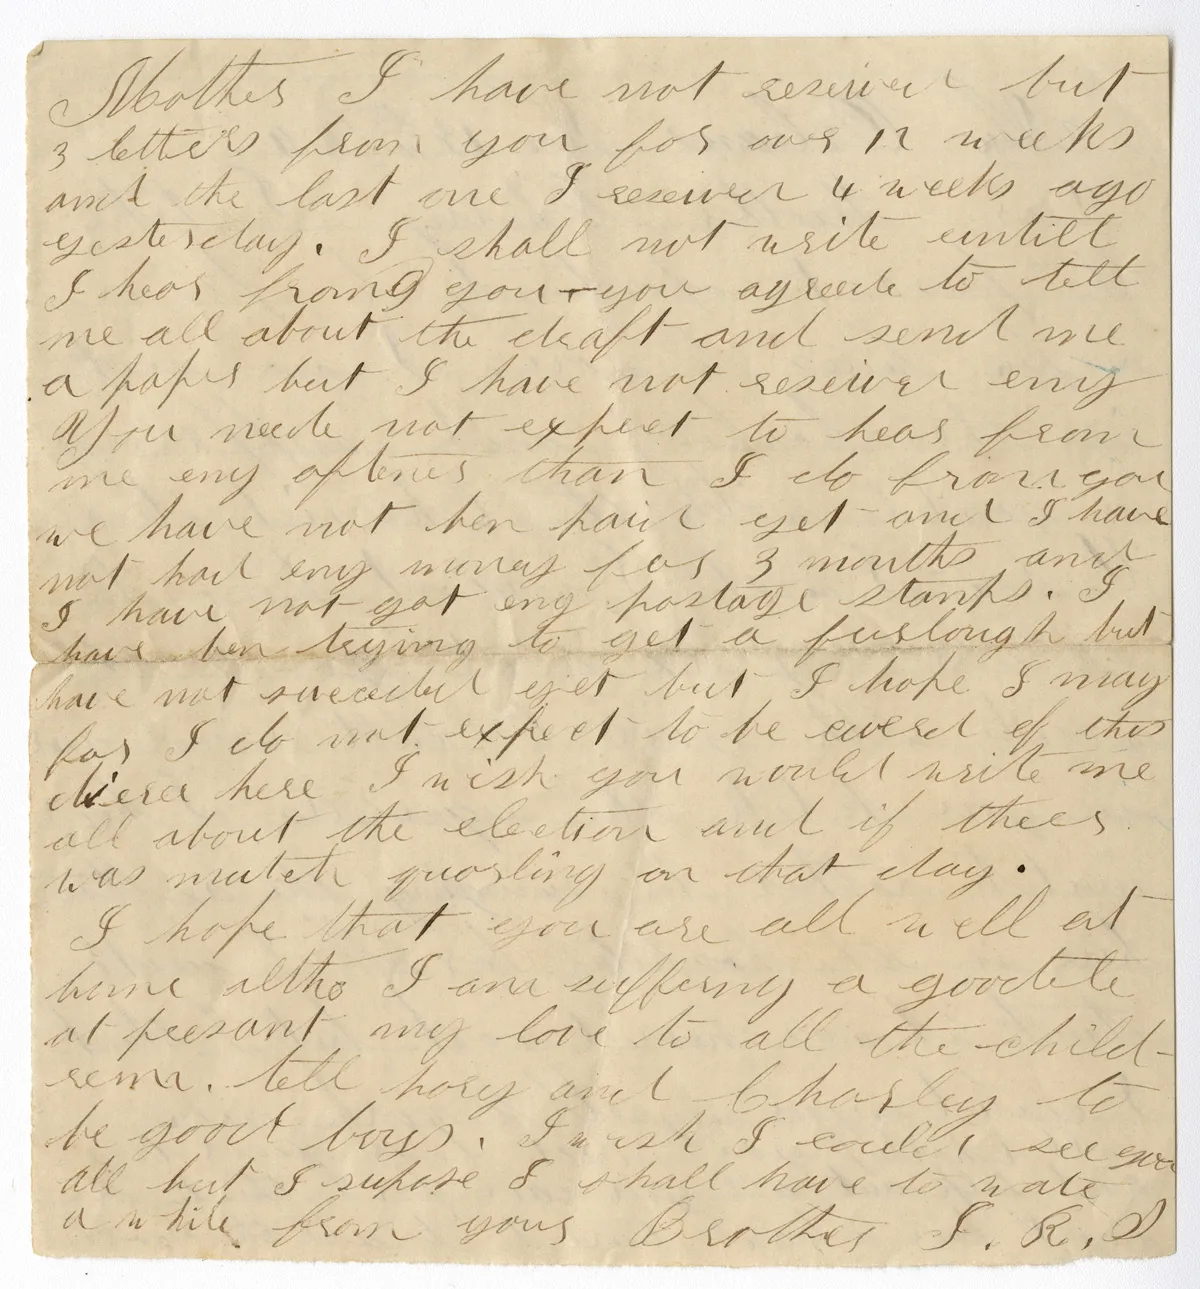 Mother I have not reseived but
3 letters from you for over 12 weeks
and the last one I reseived 4 weeks ago
yesterday. I shall not write euntill
I hear from you you agreede to tell
me all about the draft and send me
a paper but I have not reseived eny
You neede not expect to hear from
me eny oftener than I do from you
we have not ben paid yet and I have
not had eny money for 3 months and
I have not got eny postage stamps. I
have ben trying to get a furlough but
have not suceeded yet but I hope I may
for I do not expect to be cuerd of this
dierea here I wish you would write me
all about the election and if theer
was mutch quorling on that day.
I hope that you are all well at
home altho I am suffering a goodele
at preasant my love to all the child-
renn. tell hory and Charley to
be good boys. I wish I could see you
all but I supose I shall have to wate
a while from your Brother J. R. S